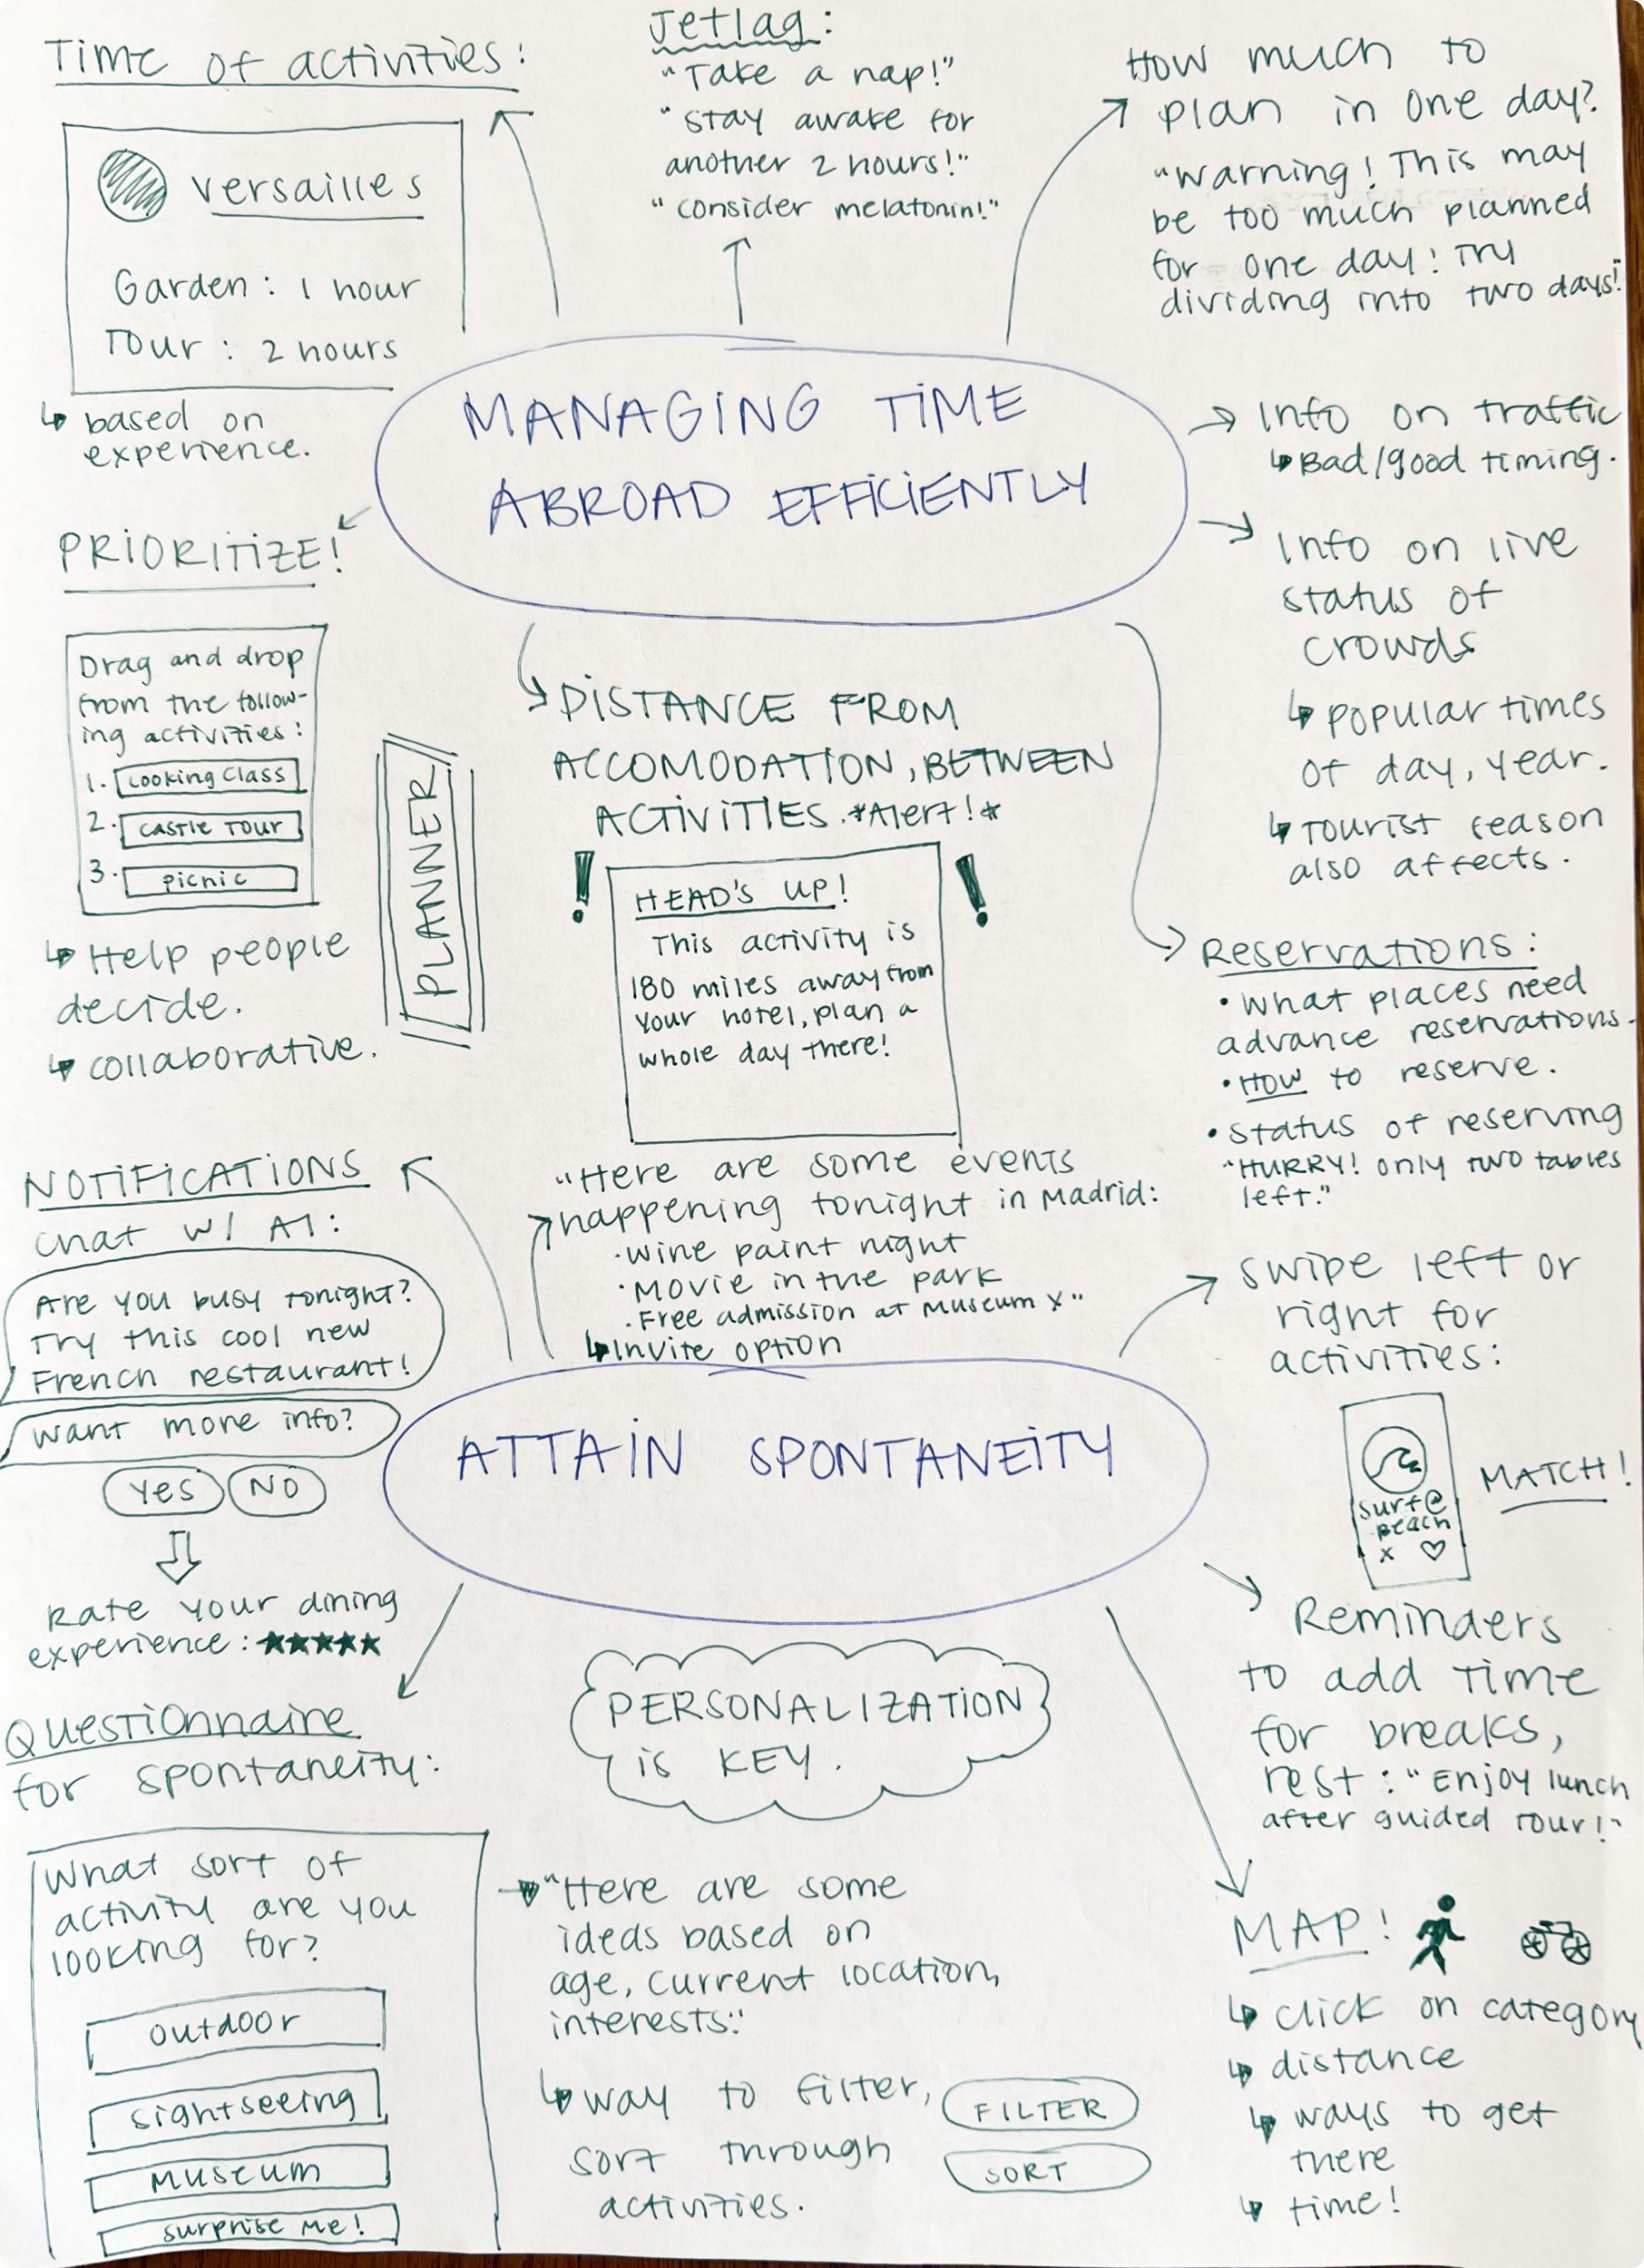 Time of activities:
Versailles
Garden: 1 hour
Tour: 2 hours
based on
experience.
Jetlag:
"Take a nap!"
"Stay awake for
another 2 hours!"
"consider melatonin!"
How much to
plan in one day?
"Warning! This may
be too much planned
for one day! Try
dividing into two days!"
MANAGING TIME
ABROAD EFFICIENTLY
Info on traffic
Bad/good timing.
Info on live
status of
crowds
popular times
of day, year.
Tourist season
also affects.
PRIORITIZE!
Drag and drop
from the follow-
ing activities:
1. Cooking Class
2. Castle Tour
3. Picnic
Help people
decide.
collaborative.
PLANNER
DISTANCE FROM
ACCOMODATION, BETWEEN
ACTIVITIES. *Alert!*
! HEAD'S UP! !
This activity is
180 miles away from
your hotel, plan a
whole day there!
Reservations:
• What places need
advance reservations.
• HOW to reserve.
• Status of reserving
"HURRY! only two tables
left."
NOTIFICATIONS
chat w/ AI:
Are you busy tonight?
Try this cool new
French restaurant!
Want more info?
Yes NO
Rate your dining
experience: ★★★★★
"Here are some events
happening tonight in Madrid:
• Wine paint night
• Movie in the park
• Free admission at Museum X"
Invite option
Swipe left or
right for
activities:
Surf @
beach
x ♡
MATCH!
ATTAIN SPONTANEITY
PERSONALIZATION
is KEY.
Reminders
to add time
for breaks,
rest: "Enjoy lunch
after guided tour!"
Questionnaire
for spontaneity:
What sort of
activity are you
looking for?
outdoor
sightseeing
Museum
surprise me!
"Here are some
ideas based on
age, current location,
interests:"
way to filter,
sort through
activities.
FILTER
SORT
MAP!
click on category
distance
ways to get
there
time!